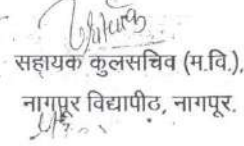 सहायक कुलसचिव (म.वि.),
नागपूर विद्यापीठ, नागपूर.